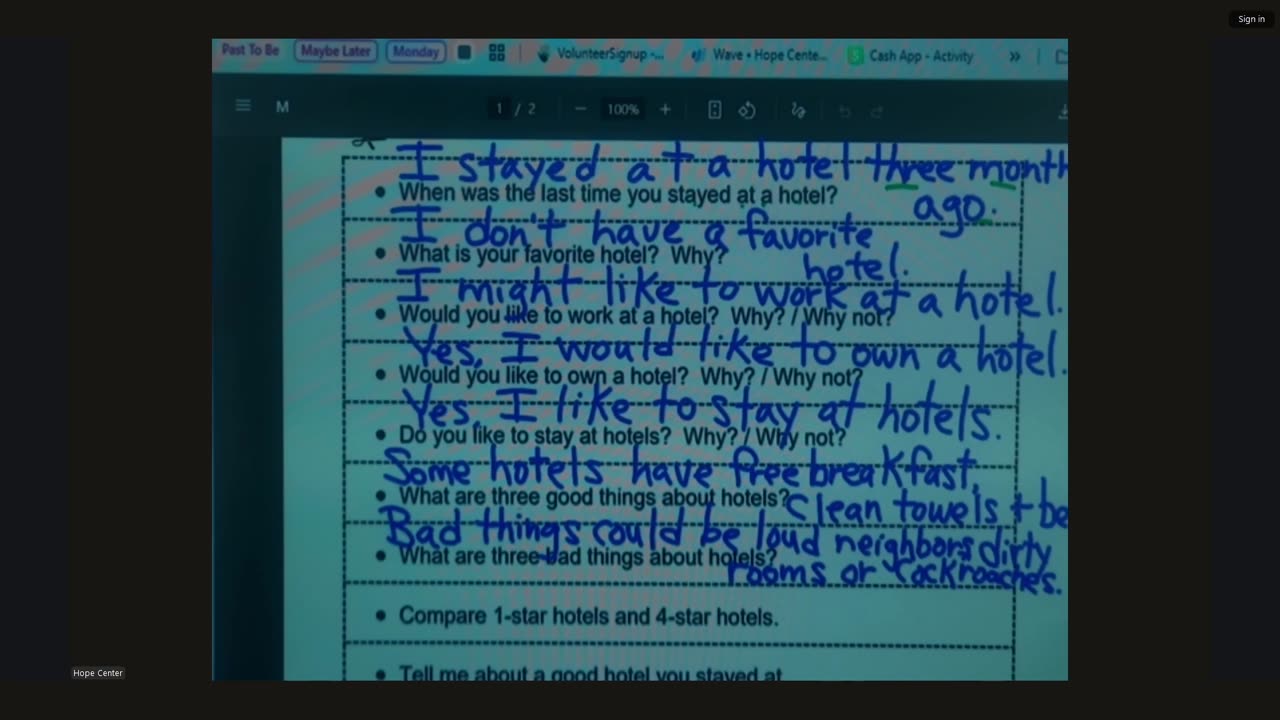 Sign in
Past To Be Maybe Later Monday VolunteerSignup -... Wave • Hope Cente... Cash App - Activity »
M 1 / 2 − 100% +
I stayed at a hotel three month
• When was the last time you stayed at a hotel?
ago.
I don't have a favorite
• What is your favorite hotel? Why?
hotel.
I might like to work at a hotel.
• Would you like to work at a hotel? Why? / Why not?
Yes, I would like to own a hotel.
• Would you like to own a hotel? Why? / Why not?
Yes, I like to stay at hotels.
• Do you like to stay at hotels? Why? / Why not?
Some hotels have free breakfast,
• What are three good things about hotels?
Clean towels + be
Bad things could be loud neighbors dirty
• What are three bad things about hotels?
rooms or cockroaches.
• Compare 1-star hotels and 4-star hotels.
• Tell me about a good hotel you stayed at
Hope Center